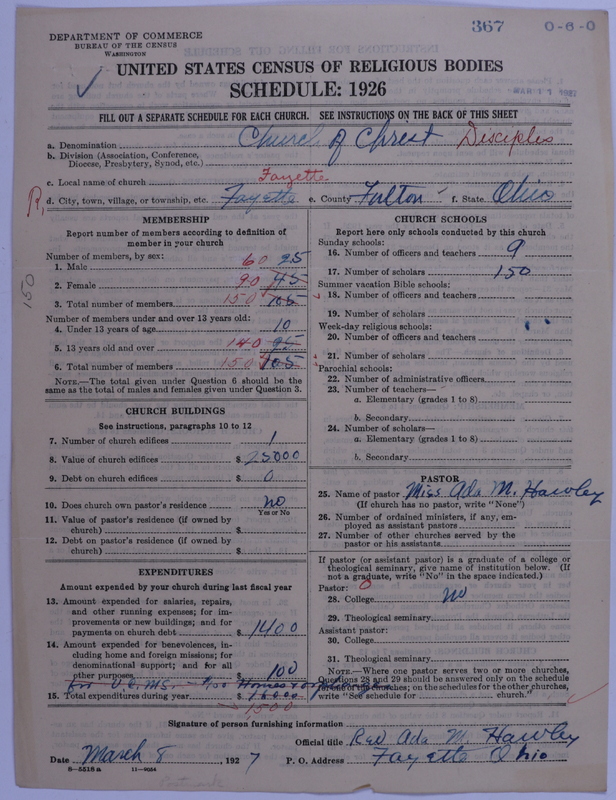 367 0-6-0
DEPARTMENT OF COMMERCE
BUREAU OF THE CENSUS
WASHINGTON
UNITED STATES CENSUS OF RELIGIOUS BODIES
SCHEDULE: 1926
MAR 11
FILL OUT A SEPARATE SCHEDULE FOR EACH CHURCH. SEE INSTRUCTIONS ON THE BACK OF THIS SHEET
a. Denomination Church of Christ Disciples
b. Division (Association, Conference, Diocese, Presbytery, Synod, etc.)
c. Local name of church Fayette
R, d. City, town, village, or township, etc. Fayette e. County Fulton f. State Ohio
MEMBERSHIP
Report number of members according to definition of member in your church
Number of members, by sex:
1. Male 60 25
2. Female 90 45
3. Total number of members 150 105
Number of members under and over 13 years old:
4. Under 13 years of age 10
5. 13 years old and over 140 95
6. Total number of members 150 105
NOTE.—The total given under Question 6 should be the same as the total of males and females given under Question 3.
150
CHURCH BUILDINGS
See instructions, paragraphs 10 to 12
7. Number of church edifices 1
8. Value of church edifices $ 25000
9. Debt on church edifices $ 0
10. Does church own pastor's residence no
Yes or No
11. Value of pastor's residence (if owned by church) $
12. Debt on pastor's residence (if owned by church) $
EXPENDITURES
Amount expended by your church during last fiscal year
13. Amount expended for salaries, repairs, and other running expenses; for improvements or new buildings; and for payments on church debt $ 1400
14. Amount expended for benevolences, including home and foreign missions; for denominational support; and for all other purposes $ 100
15. Total expenditures during year $
1500
CHURCH SCHOOLS
Report here only schools conducted by this church
Sunday schools:
16. Number of officers and teachers 9
17. Number of scholars 150
Summer vacation Bible schools:
18. Number of officers and teachers
19. Number of scholars
Week-day religious schools:
20. Number of officers and teachers
21. Number of scholars
Parochial schools:
22. Number of administrative officers
23. Number of teachers—
a. Elementary (grades 1 to 8)
b. Secondary
24. Number of scholars—
a. Elementary (grades 1 to 8)
b. Secondary
PASTOR
25. Name of pastor Miss Ada M. Hawley
(If church has no pastor, write "None")
26. Number of ordained ministers, if any, employed as assistant pastors
27. Number of other churches served by the pastor or his assistants
If pastor (or assistant pastor) is a graduate of a college or theological seminary, give name of institution below. (If not a graduate, write "No" in the space indicated.)
Pastor: 0
28. College no
29. Theological seminary
Assistant pastor:
30. College
31. Theological seminary
NOTE.—Where one pastor serves two or more churches, Questions 28 and 29 should be answered only on the schedule for one of the churches; on the schedules for the other churches, write "See schedule for church."
Signature of person furnishing information
Official title Rev Ada M Hawley
Date March 8, 1927 P. O. Address Fayette Ohio
8—5518 a 11—9054